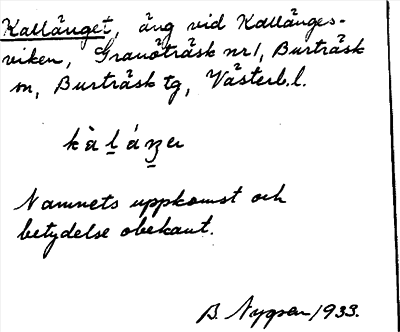 Kallänget, äng vid Kallänges-
viken, Granöträsk nr 1, Burträsk
sn, Burträsk tg, Västerb. l.
Namnets uppkomst och
betydelse obekant.
B. Nygren 1933.